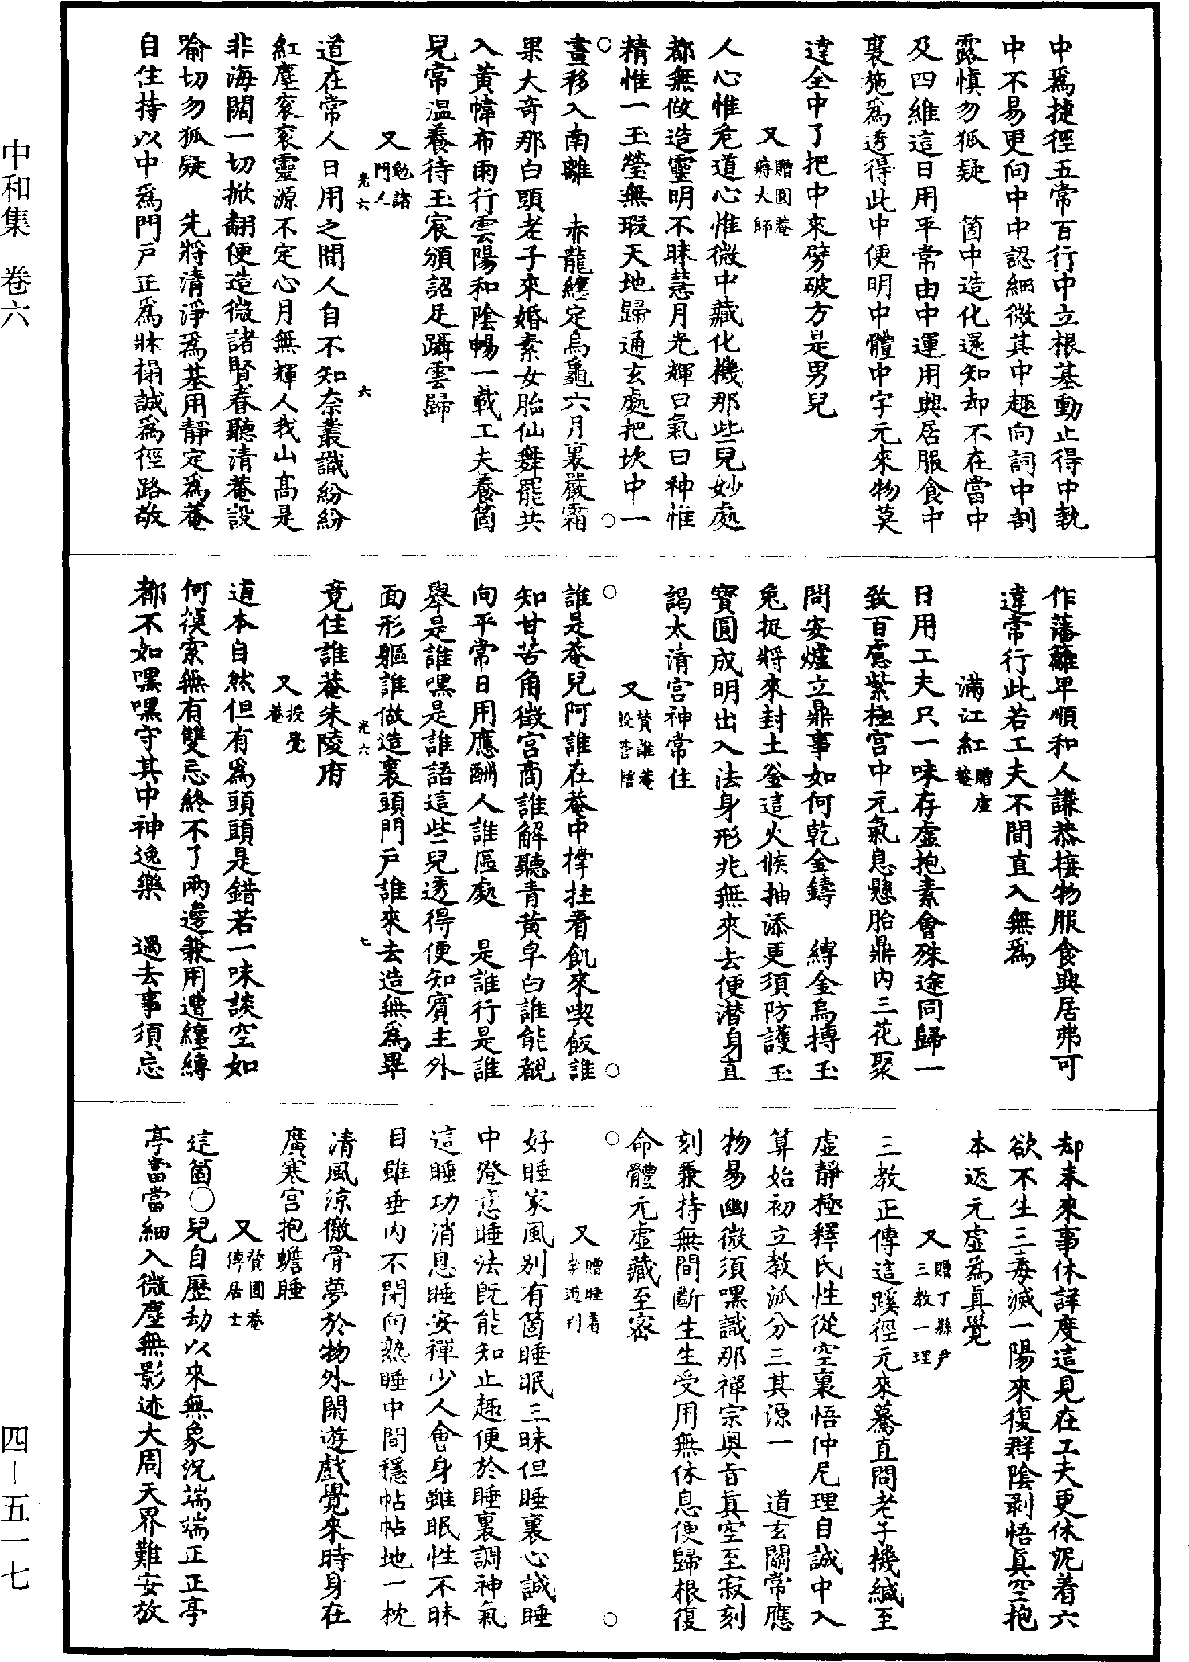 中和集　卷六
四—五一七
中爲捷徑五常百行中立根基動止得中執
中不易更向中中認細微其中趣向詞中剖
露慎勿狐疑　箇中造化還知却不在當中
及四維這日用平常由中運用興居服食中
裏施爲透得此中便明中體中字元來物莫
違全中了把中來劈破方是男兒
又贈圓菴蔣大師
人心惟危道心惟微中藏化機那些兒妙處
都無做造靈明不昧慧月光輝曰氣曰神惟
精惟一玉瑩無瑕天地歸通玄處把坎中一
畫移入南離　赤龍纏定烏龜六月裏嚴霜
果大奇那白頭老子來婚素女胎仙舞罷共
入黃幃布雨行雲陽和陰暢一載工夫養箇
兒常溫養待玉宸頒詔足躡雲歸
又勉諸門人
光六
道在常人日用之間人自不知奈叢識紛紛
六
紅塵衮衮靈源不定心月無輝人我山高是
非海闊一切掀翻便造微諸賢春聽清菴設
喻切勿狐疑　先將清淨爲基用靜定爲菴
自住持以中爲門戶正爲牀榻誠爲徑路敬
作藩籬卑順和人謙恭接物服食興居弗可
違常行此若工夫不間直入無爲
滿江紅贈虛菴
日用工夫只一味存虛抱素會殊途同歸一
致百慮紫極宮中元氣息懸胎鼎內三花聚
問安爐立鼎事如何乾金鑄　縛金烏搏玉
兔捉將來封土釜這火候抽添更須防護玉
寶圓成明出入法身形兆無來去便潜身直
謁太清宮神常住
又贊誰菴殷管轄
誰是菴兒阿誰在菴中撐拄看飢來喫飯誰
知甘苦角徵宮商誰解聽青黃皁白誰能覩
向平常日用應酬人誰區處　是誰行是誰
舉是誰嘿是誰語這些兒透得便知賓主外
面形軀誰做造裏頭門戶誰來去造無爲畢
光六
七
竟住誰菴朱陵府
又授覺菴
道本自然但有爲頭頭是錯若一味談空如
何摸索無有雙忘終不了兩邊兼用遭纏縛
都不如嘿嘿守其中神逸樂　過去事須忘
却未來事休詳度這見在工夫更休泥着六
欲不生三毒滅一陽來復群陰剥悟眞空抱
本返元虛爲眞覺
又贈丁縣尹三教一理
三教正傳這蹊徑元來驀直問老子機緘至
虛靜極釋氏性從空裏悟仲尼理自誠中入
算始初立教派分三其源一　道玄關常應
物易幽微須嘿識那禪宗奧旨眞空至寂刻
刻兼持無間斷生生受用無休息便歸根復
命體元虛藏至密
又贈睡着李道判
好睡家風別有箇睡眠三昧但睡裏心誠睡
中澄意睡法旣能知止趣便於睡裏調神氣
這睡功消息睡安禪少人會身雖眠性不昧
目雖垂內不閉向熟睡中間穩帖帖地一枕
清風涼徹骨夢於物外閑遊戲覺來時身在
廣寒宮抱蟾睡
又贊圓菴傅居士
這箇○兒自歷劫以來無象況端端正正亭
亭當當細入微塵無影迹大周天界難安放